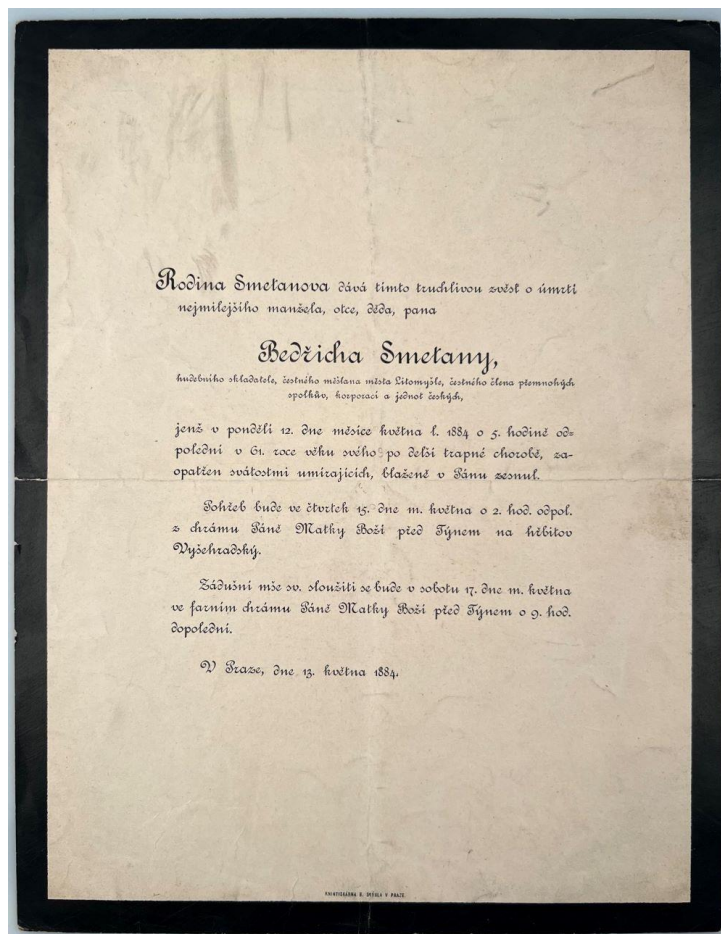 Rodina Smetanova dává tímto truchlivou zvěst o úmrtí
nejmilejšího manžela, otce, děda, pana
Bedřicha Smetany,
hudebního skladatele, čestného měšťana města Litomyšle, čestného člena přemnohých
spolkův, korporací a jednot českých,
jenž v pondělí 12. dne měsíce května l. 1884 o 5. hodině od=
polední v 61. roce věku svého po delší trapné chorobě, za-
opatřen svátostmi umírajících, blaženě v Pánu zesnul.
Pohřeb bude ve čtvrtek 15. dne m. května o 2. hod. odpol.
z chrámu Páně Matky Boží před Týnem na hřbitov
Vyšehradský.
Zádušní mše sv. sloužiti se bude v sobotu 17. dne m. května
ve farním chrámu Páně Matky Boží před Týnem o 9. hod.
dopolední.
V Praze, dne 13. května 1884.
KNIHTISKÁRNA V PRAZE